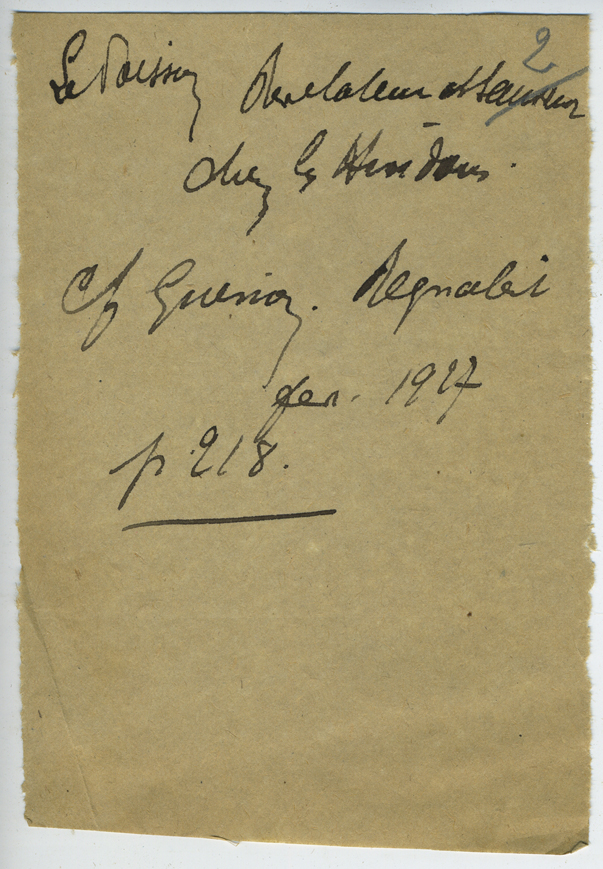 2
Le Poisson Revelateur et Sauveur
chez les Hindous.
Cf Guenon. Regnabit
fev. 1927
p. 218.